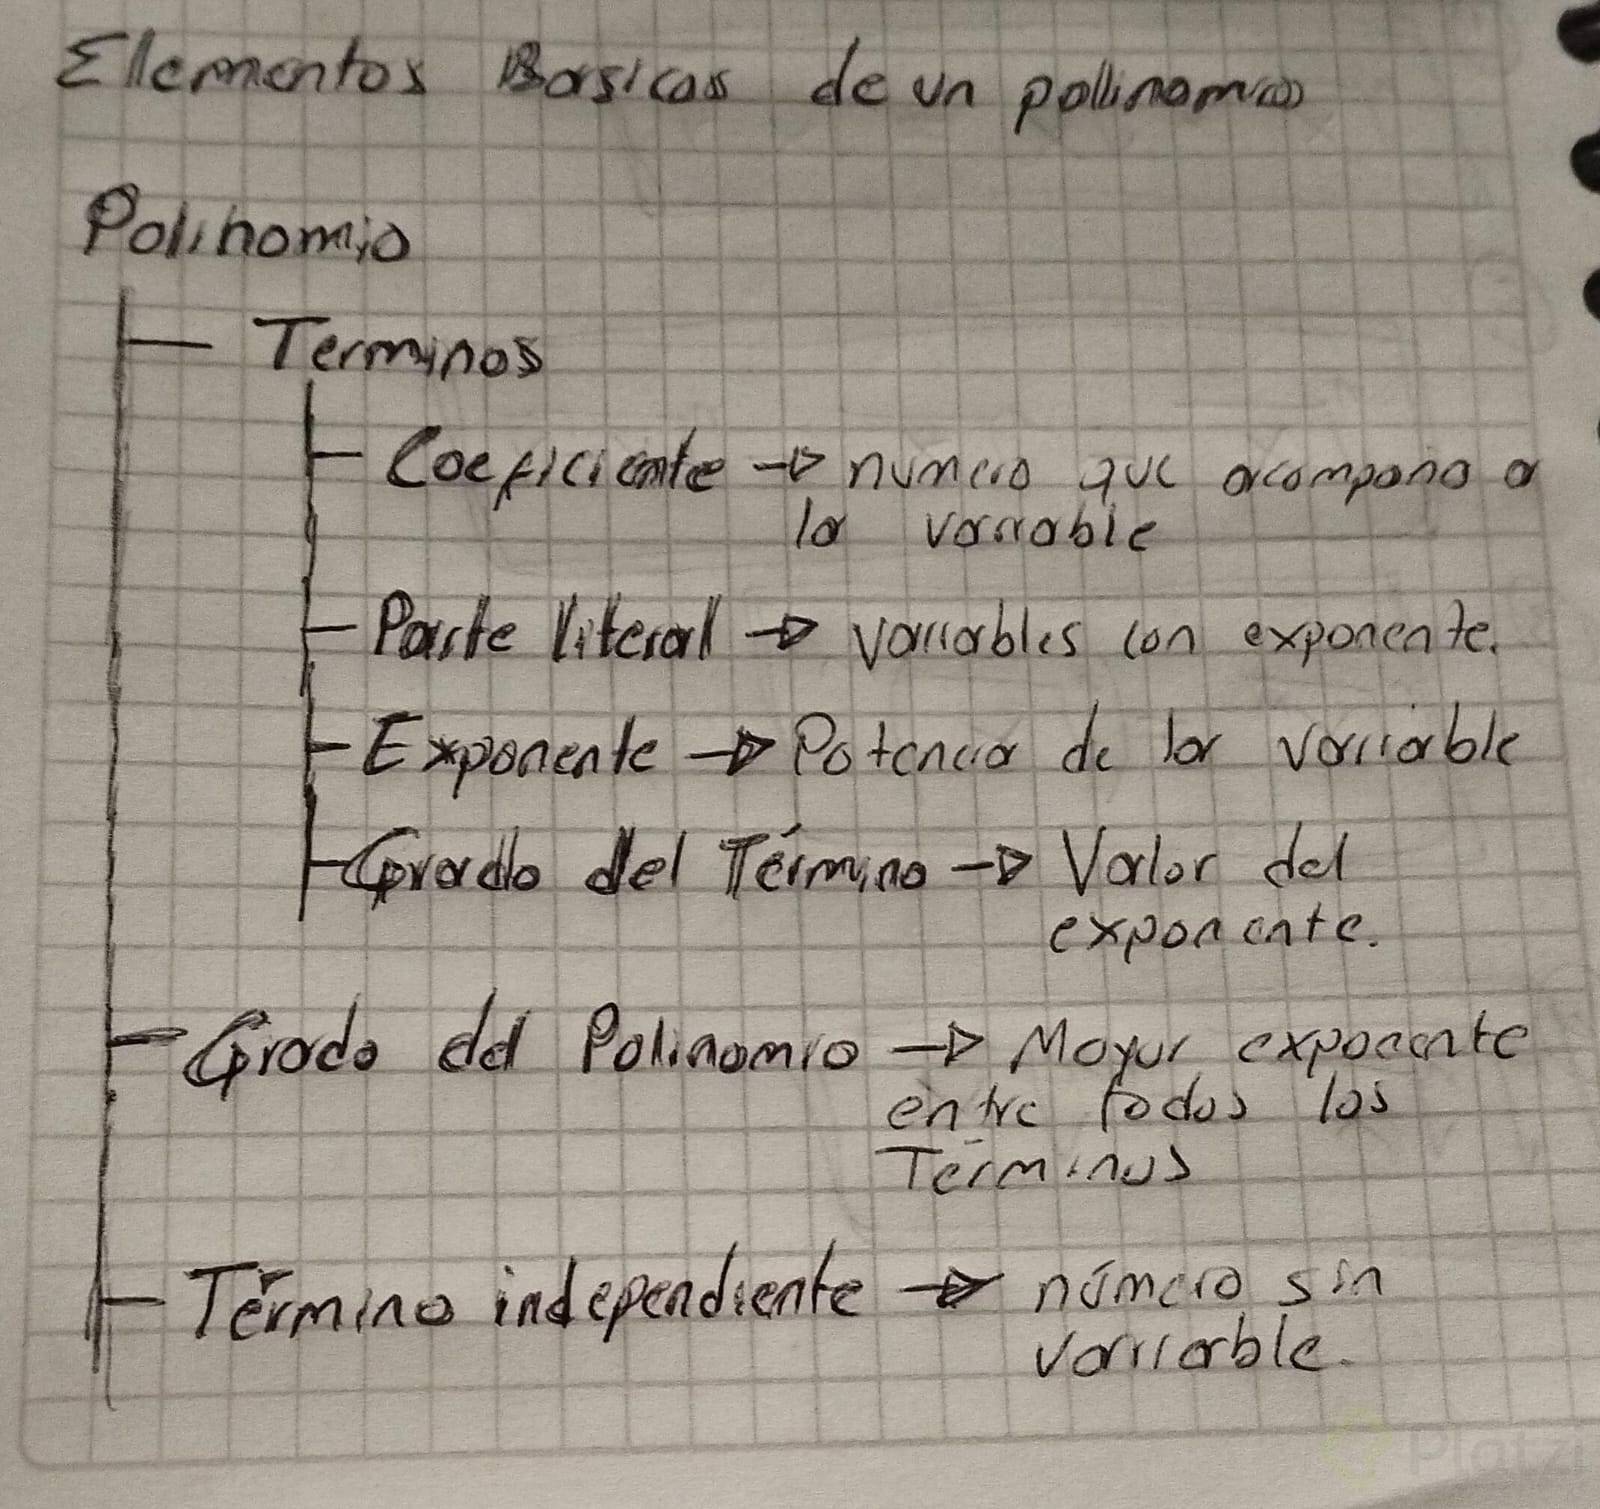 Elementos Basicos de un polinomio
Polinomio
Terminos
Coeficiente → numero que acompaña a
la variable
Parte literal → variables con exponente.
Exponente → Potencia de la variable
Grado del Término → Valor del
exponente.
Grado del Polinomio → Mayor exponente
entre todos los
Términos
Término independiente → número sin
variable.
Platzi